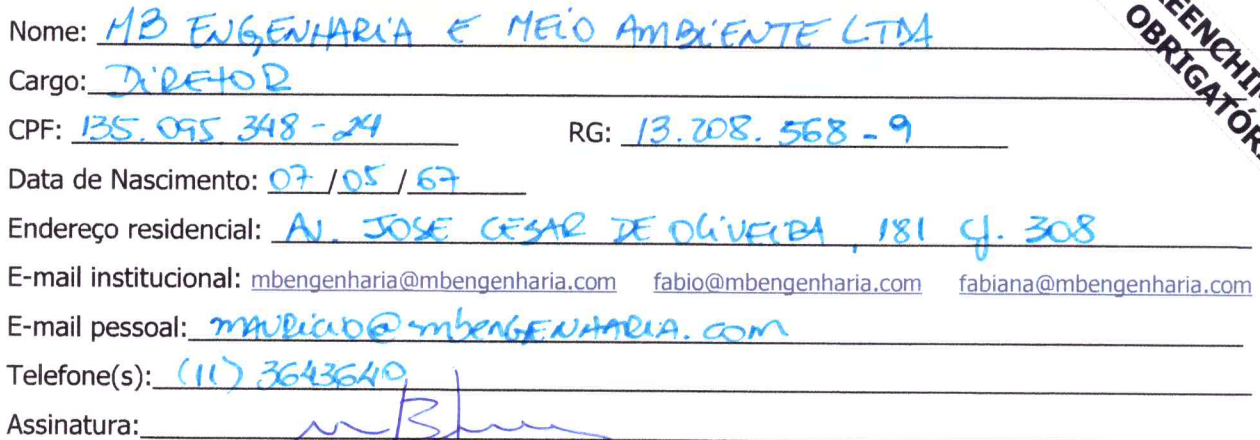 Nome: MB ENGENHARIA E MEIO AMBIENTE LTDA
Cargo: DIRETOR
CPF: 135.095 348-24 RG: 13.208.568-9
Data de Nascimento: 07/05/67
Endereço residencial: AV. JOSE CESAR DE OLIVEIRA, 181 cj. 308
E-mail institucional: mbengenharia@mbengenharia.com fabio@mbengenharia.com fabiana@mbengenharia.com
E-mail pessoal: mauricio@mbengenharia.com
Telefone(s): (11) 36436410
Assinatura: